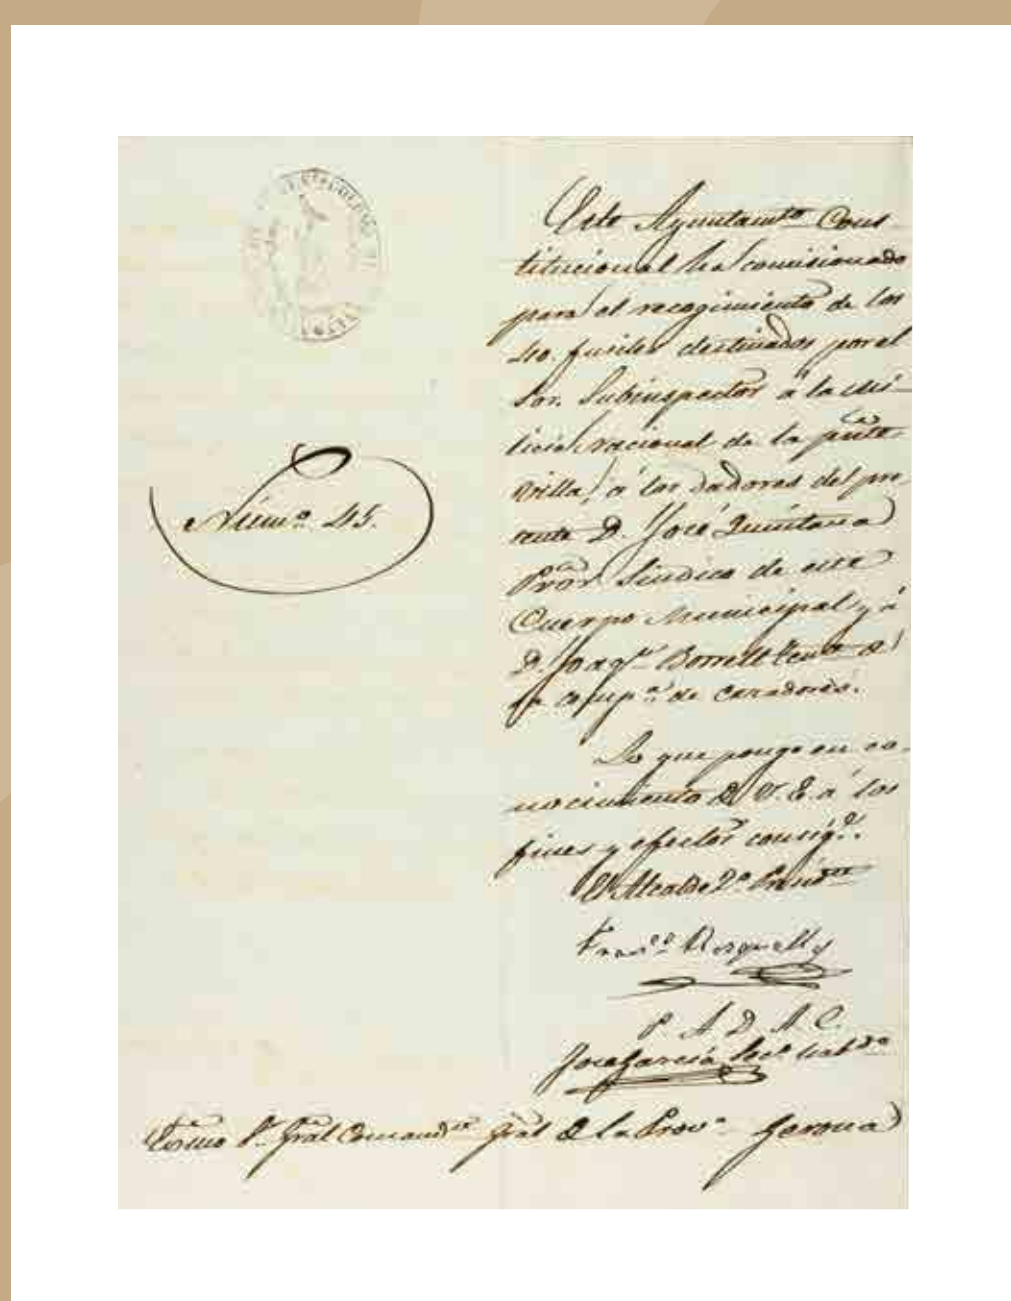 Núm.º 45.
Este Ayuntam.to Cons-
titucional ha comisionado
para el recogimiento de los
40. fusiles destinados por el
Sor. Subinspector á la mi-
licia nacional de la pnte
villa, á los dadores del pre-
sente D. José Quintana
Pror. Sindico de este
Cuerpo Municipal, y á
D. Joaq.n Borrell Ten.te de
la comp.a de cazadores.
Lo que pongo en co-
nocimiento de V. E. á los
fines y efectos consig.s.
El Alcalde 2.º Presid.te
Fran.co
P. A. D. A. C.
José García Sec.o
Exmo Sr. Gral Comand.te Gral de la Prov.a Gerona